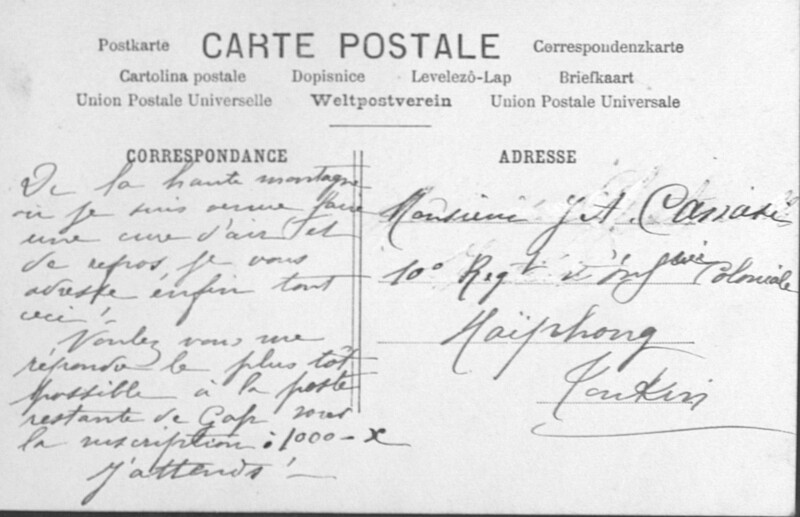 Postkarte CARTE POSTALE Correspondenzkarte
Cartolina postale Dopisnice Levelezô-Lap Briefkaart
Union Postale Universelle Weltpostverein Union Postale Universale
CORRESPONDANCE
De la haute montagne
où je suis venue faire
une cure d'air et
de repos je vous
adresse enfin tout
ceci!
Voulez vous me
répondre le plus tôt
possible à la poste
restante de Gap sous
la suscription : 1000 - X
J'attends! -
ADRESSE
Monsieur
10e Regt d' Coloniale
Haïphong
Tonkin